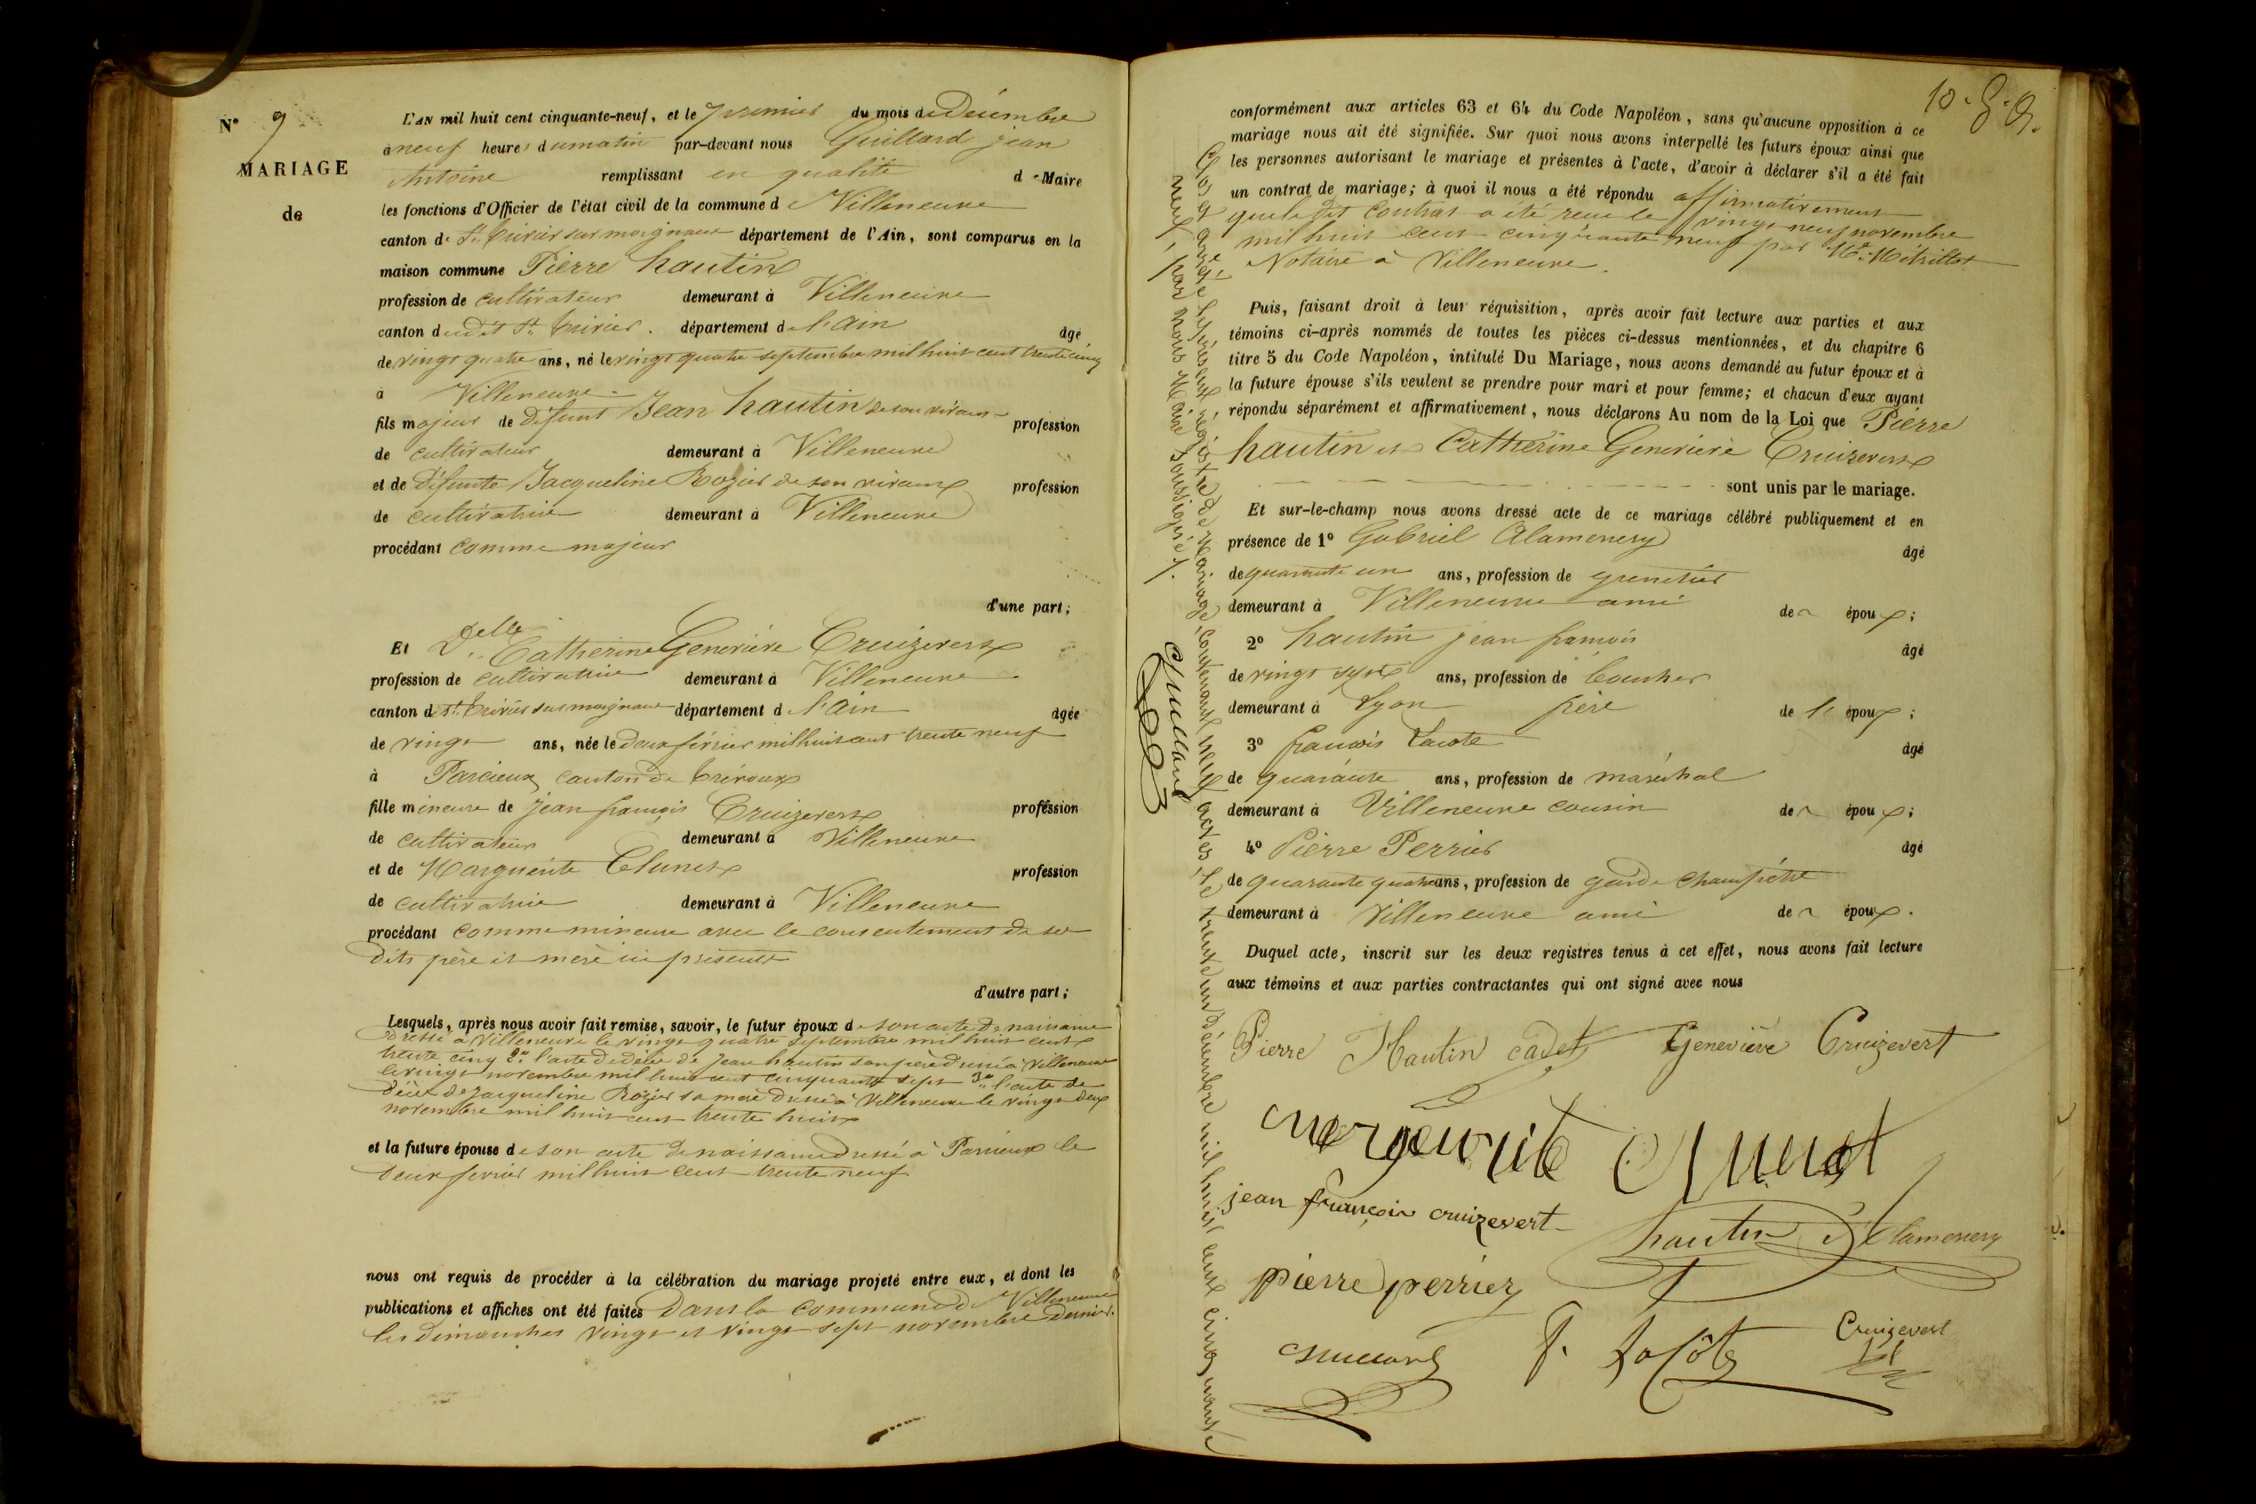 N° 9
MARIAGE
de
L'AN mil huit cent cinquante-neuf, et le premier du mois de Décembre
à neuf heures du matin par-devant nous Guillard jean
Antoine remplissant en qualité de Maire
les fonctions d'Officier de l'état civil de la commune de Villeneuve
canton de St. Trivier sur moignans département de l'Ain, sont comparus en la
maison commune Pierre hautin
profession de cultivateur demeurant à Villeneuve
canton dudit St. Trivier. département de l'Ain âgé
de vingt quatre ans, né le vingt quatre septembre mil huit cent trente cinq
à Villeneuve
fils majeur de défunt Jean hautin de son vivant profession
de cultivateur demeurant à Villeneuve
et de défunte Jacqueline Rozier de son vivant profession
de cultivatrice demeurant à Villeneuve
procédant comme majeur
d'une part;
Et Delle Catherine Geneviève Cruizevert
profession de cultivatrice demeurant à Villeneuve
canton de St. Trivier sur moignans département de l'Ain âgée
de vingt ans, née le deux février mil huit cent trente neuf
à Parcieux canton de Trévoux
fille mineure de jean françois Cruizevert profession
de cultivateur demeurant à Villeneuve
et de Marguerite Clunet profession
de cultivatrice demeurant à Villeneuve
procédant comme mineure avec le consentement de ses
dits père et mère ici présents
d'autre part;
Lesquels, après nous avoir fait remise, savoir, le futur époux de son acte de naissance
dressé à Villeneuve le vingt quatre septembre mil huit cent
trente cinq 2° l'acte de décès de Jean hautin son père dressé à Villeneuve
le vingt novembre mil huit cent cinquante sept 3° l'acte de
décès de Jacqueline Rozier sa mère dressé à Villeneuve le vingt deux
novembre mil huit cent trente huit
et la future épouse de son acte de naissance dressé à Parcieux le
deux février mil huit cent trente neuf
nous ont requis de procéder à la célébration du mariage projeté entre eux, et dont les
publications et affiches ont été faites dans la commune de Villeneuve
les dimanches vingt et vingt sept novembre dernier.
conformément aux articles 63 et 64 du Code Napoléon, sans qu'aucune opposition à ce
mariage nous ait été signifiée. Sur quoi nous avons interpellé les futurs époux ainsi que
les personnes autorisant le mariage et présentes à l'acte, d'avoir à déclarer s'il a été fait
un contrat de mariage; à quoi il nous a été répondu affirmativement
que le dit contrat a été reçu le vingt neuf novembre
mil huit cent cinquante neuf par Me
Notaire à Villeneuve.
Puis, faisant droit à leur réquisition, après avoir fait lecture aux parties et aux
témoins ci-après nommés de toutes les pièces ci-dessus mentionnées, et du chapitre 6
titre 5 du Code Napoléon, intitulé Du Mariage, nous avons demandé au futur époux et à
la future épouse s'ils veulent se prendre pour mari et pour femme; et chacun d'eux ayant
répondu séparément et affirmativement, nous déclarons Au nom de la Loi que Pierre
hautin et Catherine Geneviève Cruizevert
sont unis par le mariage.
Et sur-le-champ nous avons dressé acte de ce mariage célébré publiquement et en
présence de 1° Gabriel Alamenery âgé
de quarante un ans, profession de grenetier
demeurant à Villeneuve ami de époux;
2° hautin jean françois âgé
de vingt sept ans, profession de boucher
demeurant à Lyon frère de l' époux;
3° françois Lacote âgé
de quarante ans, profession de maréchal
demeurant à Villeneuve cousin de époux;
4° Pierre Perrier âgé
de quarante quatre ans, profession de garde champêtre
demeurant à Villeneuve ami de époux.
Duquel acte, inscrit sur les deux registres tenus à cet effet, nous avons fait lecture
aux témoins et aux parties contractantes qui ont signé avec nous
Pierre Hautin cadet Geneviève Cruizevert
jean françois cruizevert
hautin Alamenery
pierre perrier
Guillard F. Lacôte Cruizevert
Clos et arrêté le présent registre de Mariage, contenant neuf actes, le trente un décembre mil huit cent cinquante
neuf, par Nous Maire soussigné.
Guillard